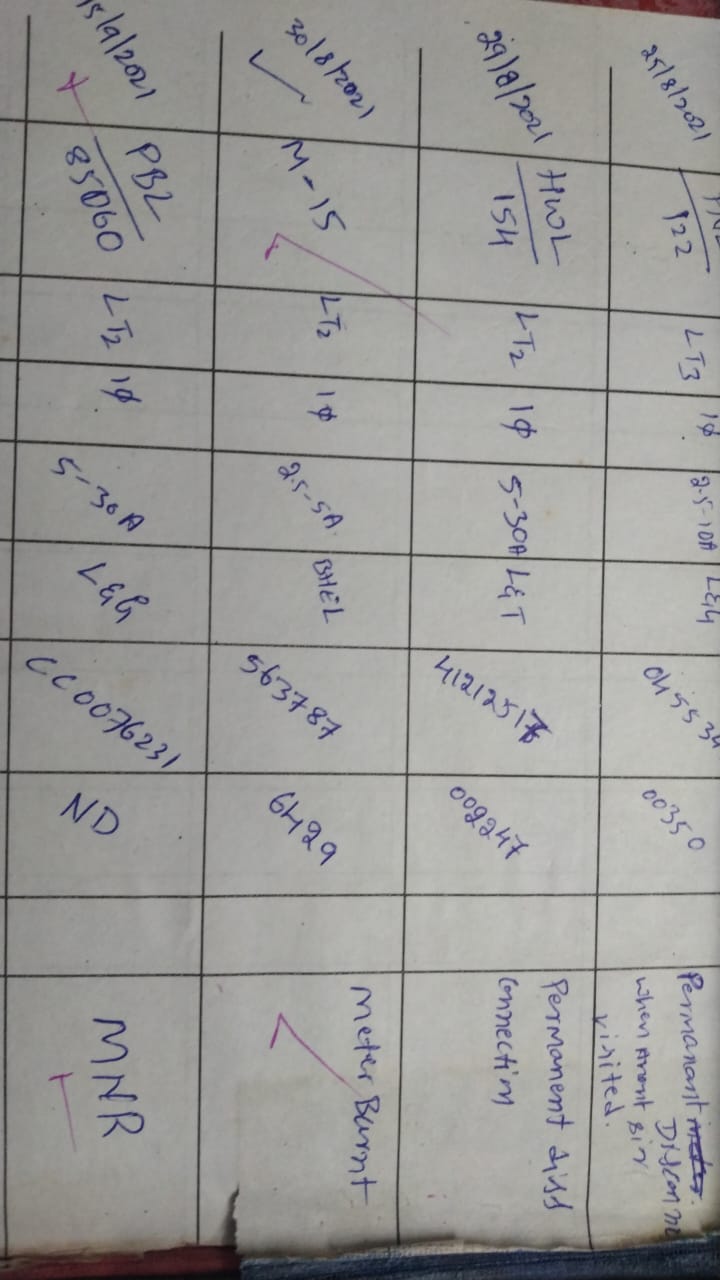 25/8/2021
122
LT3
1φ
2.5-10A
L&G
00350
Permanant
Disconn
when
sir
visited.
29/8/2021
HWL
154
LT2
1φ
5-30A
L&T
002247
Permanent diss
connection
30/8/2021
M-15
LT2
1φ
2.5-5A
BHEL
563787
6429
Meter Burnt
/9/2021
PBL
85060
LT2
1φ
5-30A
L&G
CC0076231
ND
MNR